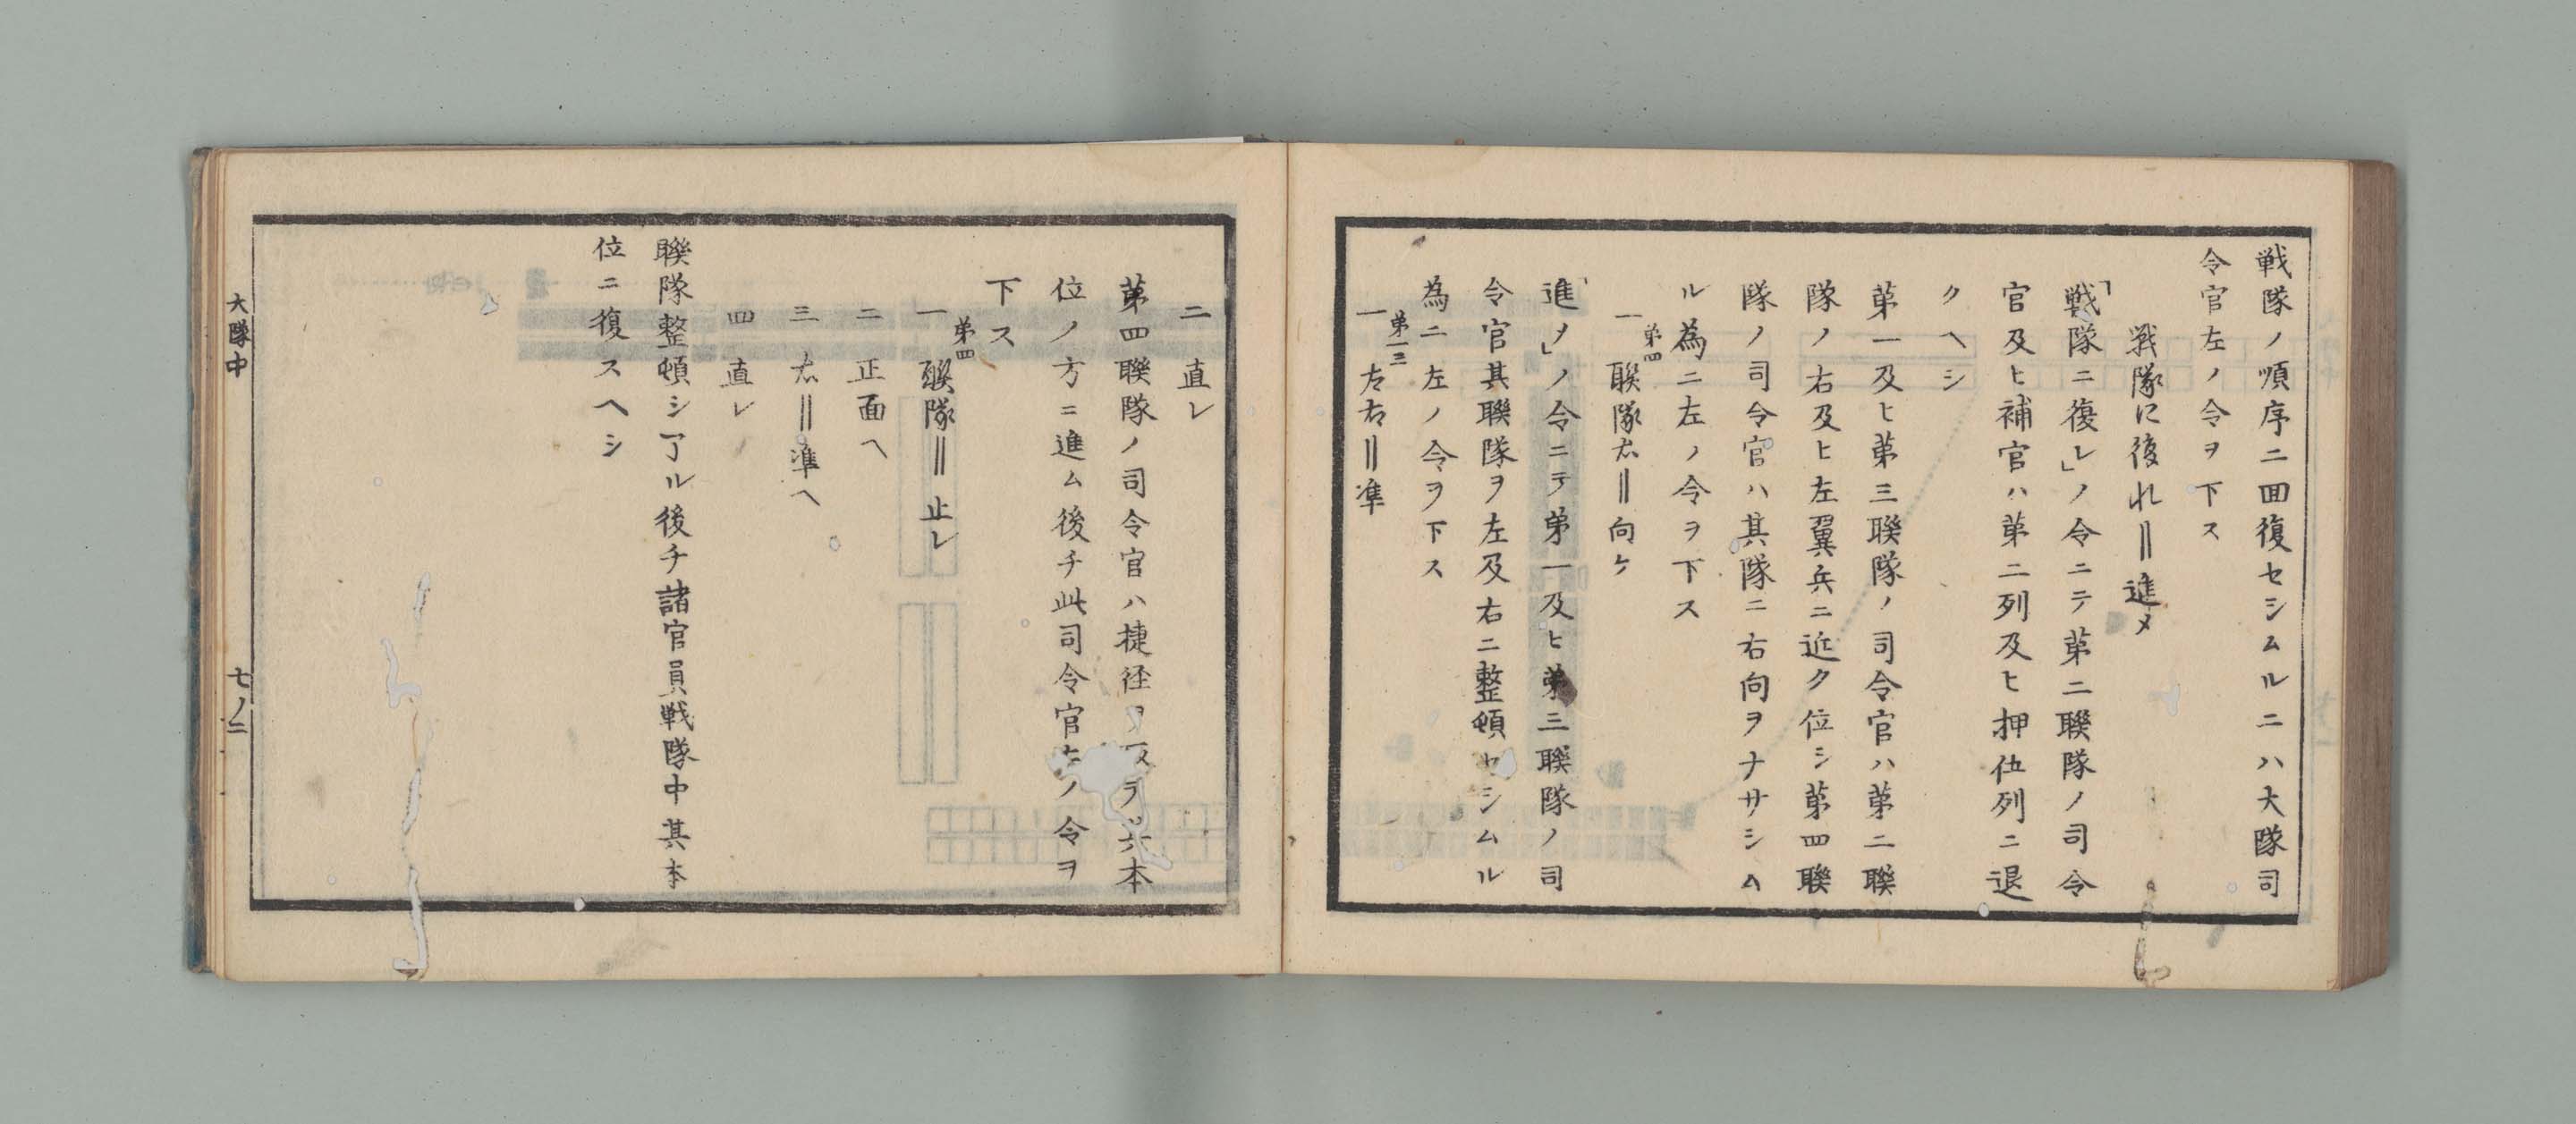 戦隊ノ順序ニ回復セシムルニハ大隊司
令官左ノ令ヲ下ス
戦隊に復れ‖進メ
「戦隊ニ復レ」ノ令ニテ第二聯隊ノ司令
官及ヒ補官ハ第二列及ヒ押伍列ニ退
クヘシ
第一及ヒ第三聯隊ノ司令官ハ第二聯
隊ノ右及ヒ左翼兵ニ近ク位シ第四聯
隊ノ司令官ハ其隊ニ右向ヲナサシム
ル為ニ左ノ令ヲ下ス
一 第四聯隊右‖向ケ
「進メ」ノ令ニテ第一及ヒ第三聯隊ノ司
令官其聯隊ヲ左及右ニ整頓セシムル
為ニ左ノ令ヲ下ス
一 第一三左右‖準
二 直レ
第四聯隊ノ司令官ハ捷径ヲ取テ其本
位ノ方ニ進ム後チ此司令官左ノ令ヲ
下ス
一 第四聯隊‖止レ
二 正面ヘ
三 右‖準ヘ
四 直レ
聯隊整頓シ了ル後チ諸官員戦隊中其本
位ニ復スヘシ
大隊中 七ノ二